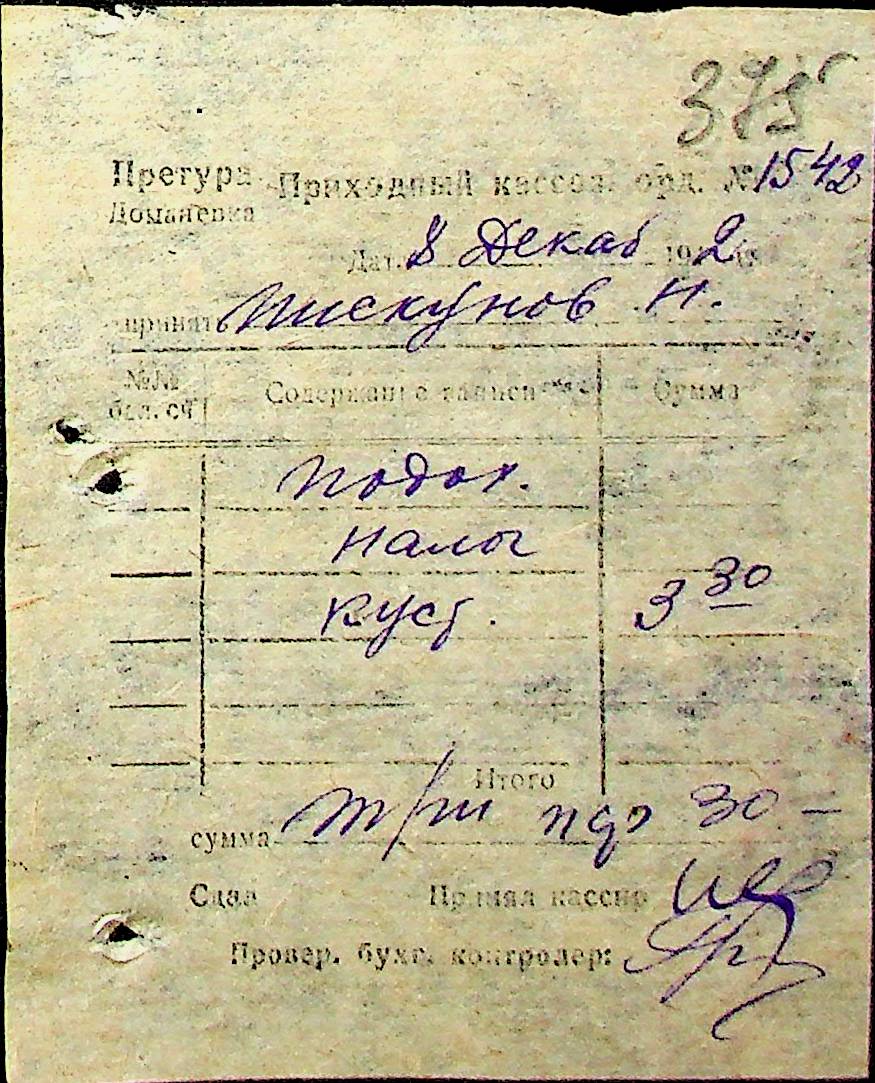 375
Претура Приходный кассов. орд. № 1542
Доманевка
Дат. 8 Декаб 1942
принять Пискунов Н.
№№ бал. сч Содержание записи Сумма
подох.
налог
куст. 3 30
Итого
сумма три 30 —
Сдал Принял кассир
Провер. бухг. контролер: